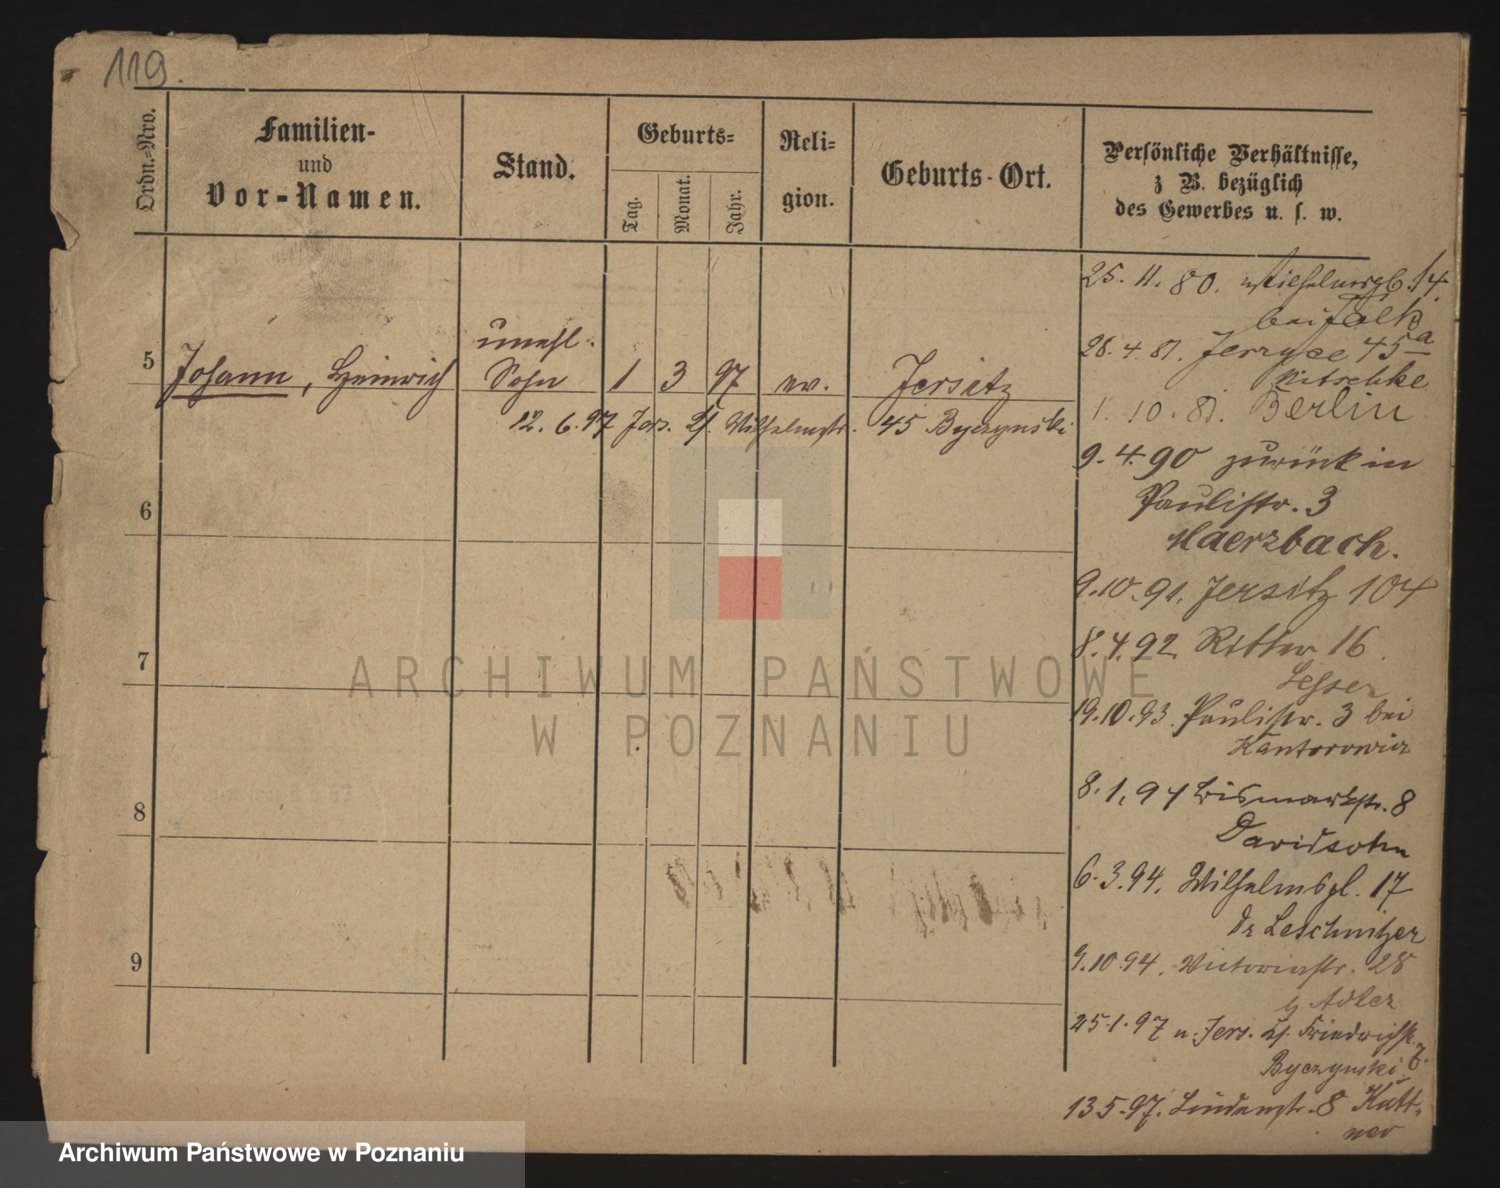 119.
Ordn.-Nro.
Familien-
und
Vor-Namen.
Stand.
Geburts-
Tag.
Monat.
Jahr.
Reli-
gion.
Geburts-Ort.
Persönliche Verhältnisse,
z B. bezüglich
des Gewerbes u. s. w.
5
Johann, Heinrich
unehl.
Sohn
1
3
97
ev.
Jersitz
12. 6. 97 Jers. Wilhelmstr. 45 Byczynski
6
7
8
9
25. 11. 80. 14
bei Falk
28. 4. 81. Jerzyce 45a
Nitschke
1. 10. 81. Berlin
9. 4. 90 zurück in
Paulistr. 3
Maerzbach.
9. 10. 91. Jersitz 104
8. 4. 92. Ritter 16
Lesser
19. 10. 93. Paulistr. 3 bei
Kantorowicz
8. 1. 94 Bismarkstr. 8
Davidsohn
6. 3. 94. Wilhelmspl. 17
Dr Leschnitzer
9. 10 94. Victoriastr. 28
b/ Adler
25. 1. 97 n. Jers. Friedrichstr. 7.
Byczynski
13. 5. 97. Lindenstr. 8 Kutt-
ner
ARCHIWUM PAŃSTWOWE
W POZNANIU
Archiwum Państwowe w Poznaniu